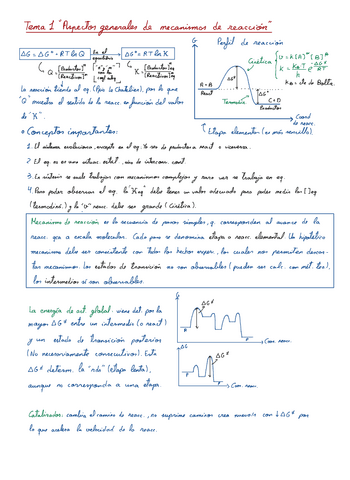 Tema 1 "Aspectos generales de mecanismos de reacción"
ΔG = ΔG° + RT ln Q
En el equilibrio
ΔG° = -RT ln K
Q
[Productos]
[Reactivos]
K
[Productos]eq
[Reactivos]eq
La reacción tiende al eq. (Ppio Le Chatelier), por lo que
"Q" muestra el sentido de la reacc. en función del valor
de "K".
G
Perfil de reacción
Cinética
v = k[A]ᵃ[B]ᵇ
A + B
React
ΔG‡
ΔG°
C + D
Productos
Termodin.
Coord
de reacc.
Etapa elemental (es más sencilla).
Conceptos importantes:
1. El sistema evoluciona, excepto en el eq. Ya sea de productos a react. o viceversa.
2. El eq. no es una situac. estát., sino de intercam. const.
3. La
4. Para poder observar el eq. la "Keq" debe tener un valor adecuado para poder medir las [ ]eq
(termodiná.) y la "v" reacc. debe ser grande (cinética).
Mecanismo de reacción: es la secuencia de pasos simples, q. corresponden al avance de la
reacc. que a escala molecular. Cada paso se denomina etapa o reacc. elemental. Un hipotético
mecanismo debe ser consistente con todos los hechos exper., los cuales nos permiten descar-
tar mecanismos. Los estados de transición no son observables (pueden ser calc. con mét. teó.),
los intermedios sí son observables.
La energía de act. global: viene det. por la
mayor ΔG‡ entre un intermedio (o react)
y un estado de transición posterior
(No necesariamente consecutivos). Esta
ΔG‡ determ. la "rds" (etapa lenta),
aunque no corresponda a una etapa.
G
ΔG‡
R
P
Coor. reacc.
G
ΔG‡
R
P
Coor. reacc.
Catalizador: cambia el camino de reacc., no suprime caminos crea nuevos con ↓ΔG‡ por
lo que acelera la velocidad de la reacc.